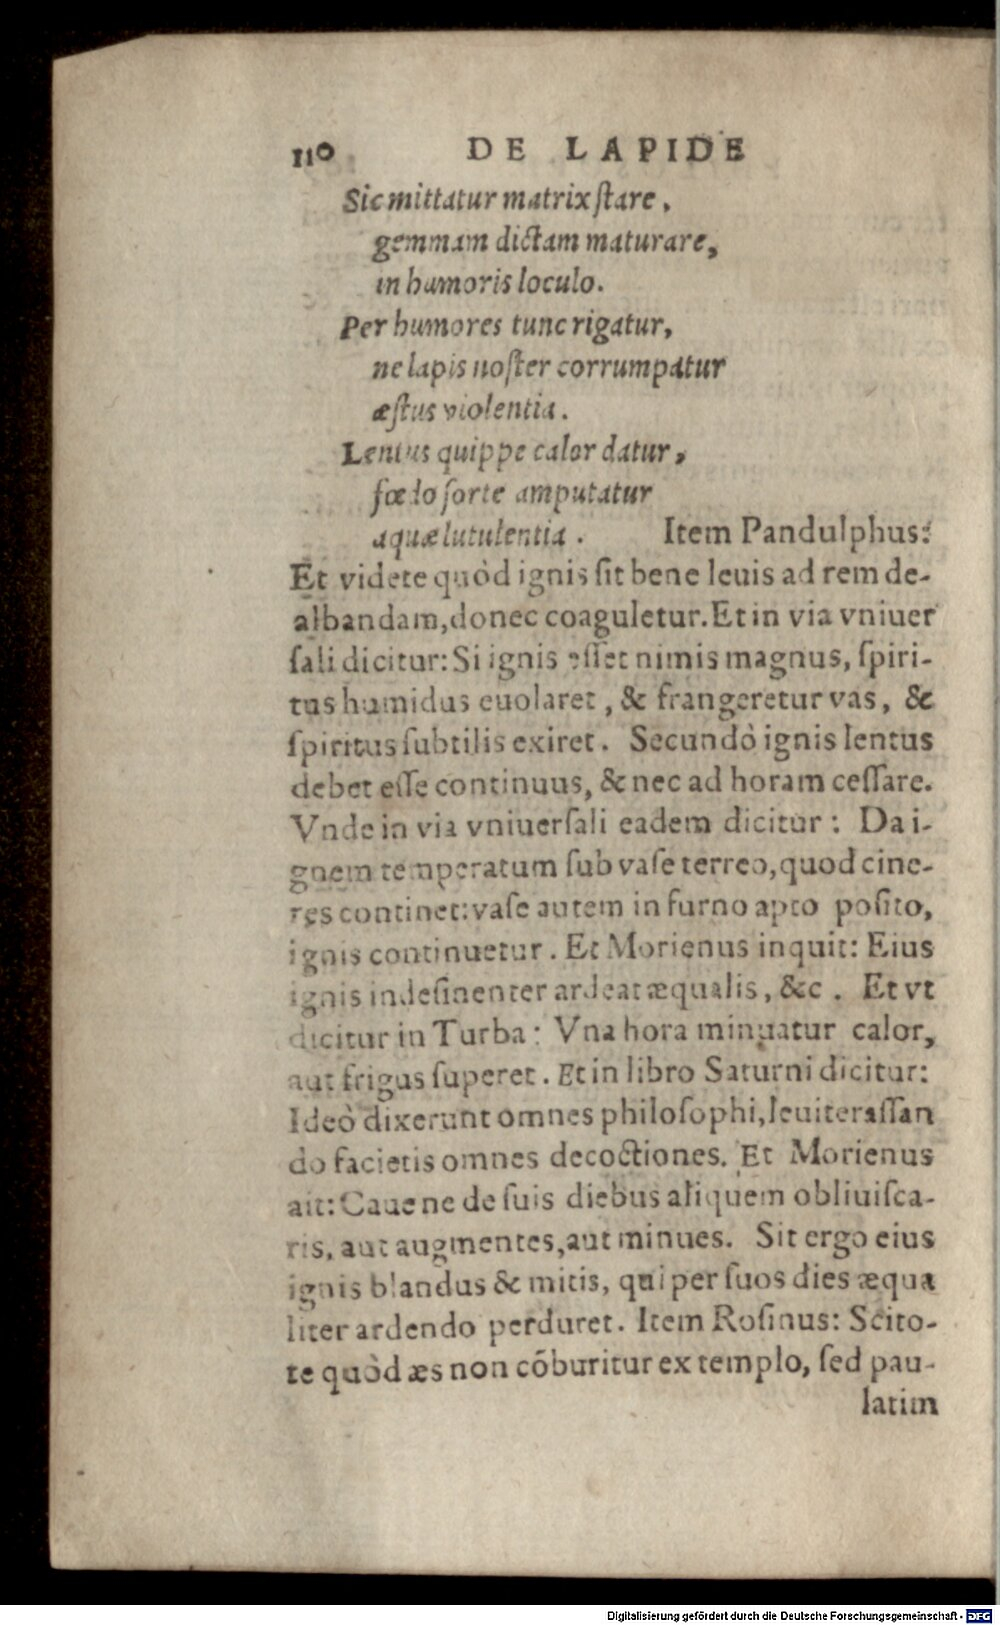 110 DE LAPIDE
Sic mittatur matrix ſtare,
gemmam dictam maturare,
in humoris loculo.
Per humores tunc rigatur,
ne lapis noſter corrumpatur
æſtus violentia.
Lentus quippe calor datur,
fœdo ſorte amputatur
aquæ lutulentia. Item Pandulphus:
Et videte quòd ignis ſit bene leuis ad rem de-
albandam, donec coaguletur. Et in via vniuer
ſali dicitur: Si ignis eſſet nimis magnus, ſpiri-
tus humidus euolaret, & frangeretur vas, &
ſpiritus ſubtilis exiret. Secundò ignis lentus
debet eſſe continuus, & nec ad horam ceſſare.
Vnde in via vniuerſali eadem dicitur: Da i-
gnem temperatum ſub vaſe terreo, quod cine-
res continet: vaſe autem in furno apto poſito,
ignis continuetur. Et Morienus inquit: Eius
ignis indeſinenter ardeat æqualis, &c. Et vt
dicitur in Turba: Vna hora minuatur calor,
aut frigus ſuperet. Et in libro Saturni dicitur:
Ideò dixerunt omnes philoſophi, leuiter aſſan
do facietis omnes decoctiones. Et Morienus
ait: Caue ne de ſuis diebus aliquem obliuiſca-
ris, aut augmentes, aut minues. Sit ergo eius
ignis blandus & mitis, qui per ſuos dies æqua
liter ardendo perduret. Item Roſinus: Scito-
te quòd æs non cõburitur ex templo, ſed pau-
latim
Digitalisierung gefördert durch die Deutsche Forschungsgemeinschaft - DFG